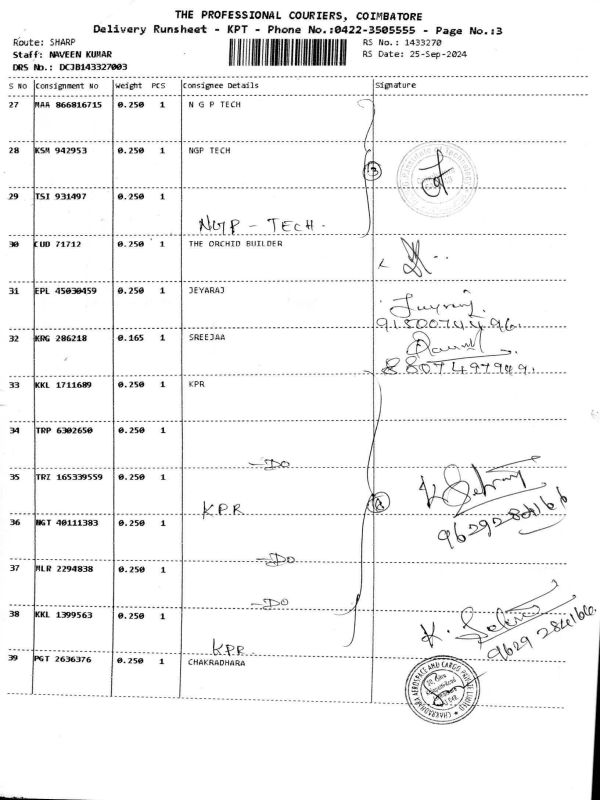 THE PROFESSIONAL COURIERS, COIMBATORE
Delivery Runsheet - KPT - Phone No.:0422-3505555 - Page No.:3
Route: SHARP RS No.: 1433270
Staff: NAVEEN KUMAR RS Date: 25-Sep-2024
DRS No.: DCJB143327003
S No Consignment No Weight PCS Consignee Details Signature
27 MAA 866816715 0.250 1 N G P TECH
28 KSM 942953 0.250 1 NGP TECH
29 TSI 931497 0.250 1
NGP - TECH.
30 CUD 71712 0.250 1 THE ORCHID BUILDER
31 EPL 45030459 0.250 1 JEYARAJ
32 KRG 286218 0.165 1 SREEJAA
33 KKL 1711689 0.250 1 KPR
34 TRP 6302650 0.250 1
-DO
35 TRZ 165339559 0.250 1
KPR
9629284166
36 NGT 40111383 0.250 1
-DO
37 MLR 2294838 0.250 1
-DO
38 KKL 1399563 0.250 1
KPR
9629284166.
39 PGT 2636376 0.250 1 CHAKRADHARA
CHAKRADHARA AEROSPACE AND CARGO PRIVATE LIMITED